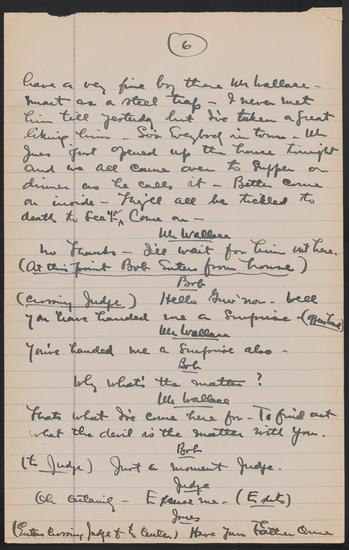 6
have a very fine boy there Mr Wallace -
smart as a steel trap - I never met
him till yesterday but I've taken a great
liking him - So's everybody in town - Mr
Jones just opened up the house tonight
and we all came over to supper or
dinner as he calls it - Better come
on inside - They'll all be tickled to
death to see yr. Come on -
Mr Wallace
No thanks - I'll wait for him out here.
(At this point Bob enters from house)
Bob
(crossing Judge) Hello Guv'nor - well
you have handed me a surprise -
Mr Wallace
You've handed me a surprise also -
Bob
Why what's the matter?
Mr Wallace
Thats what I've come here for - To find out
what the devil is the matter with you.
Bob
(to Judge) Just a moment Judge.
Judge
Oh certainly - Excuse me - (Exits)
Jones
(Enters crossing Judge to Center) Have Jim Father come